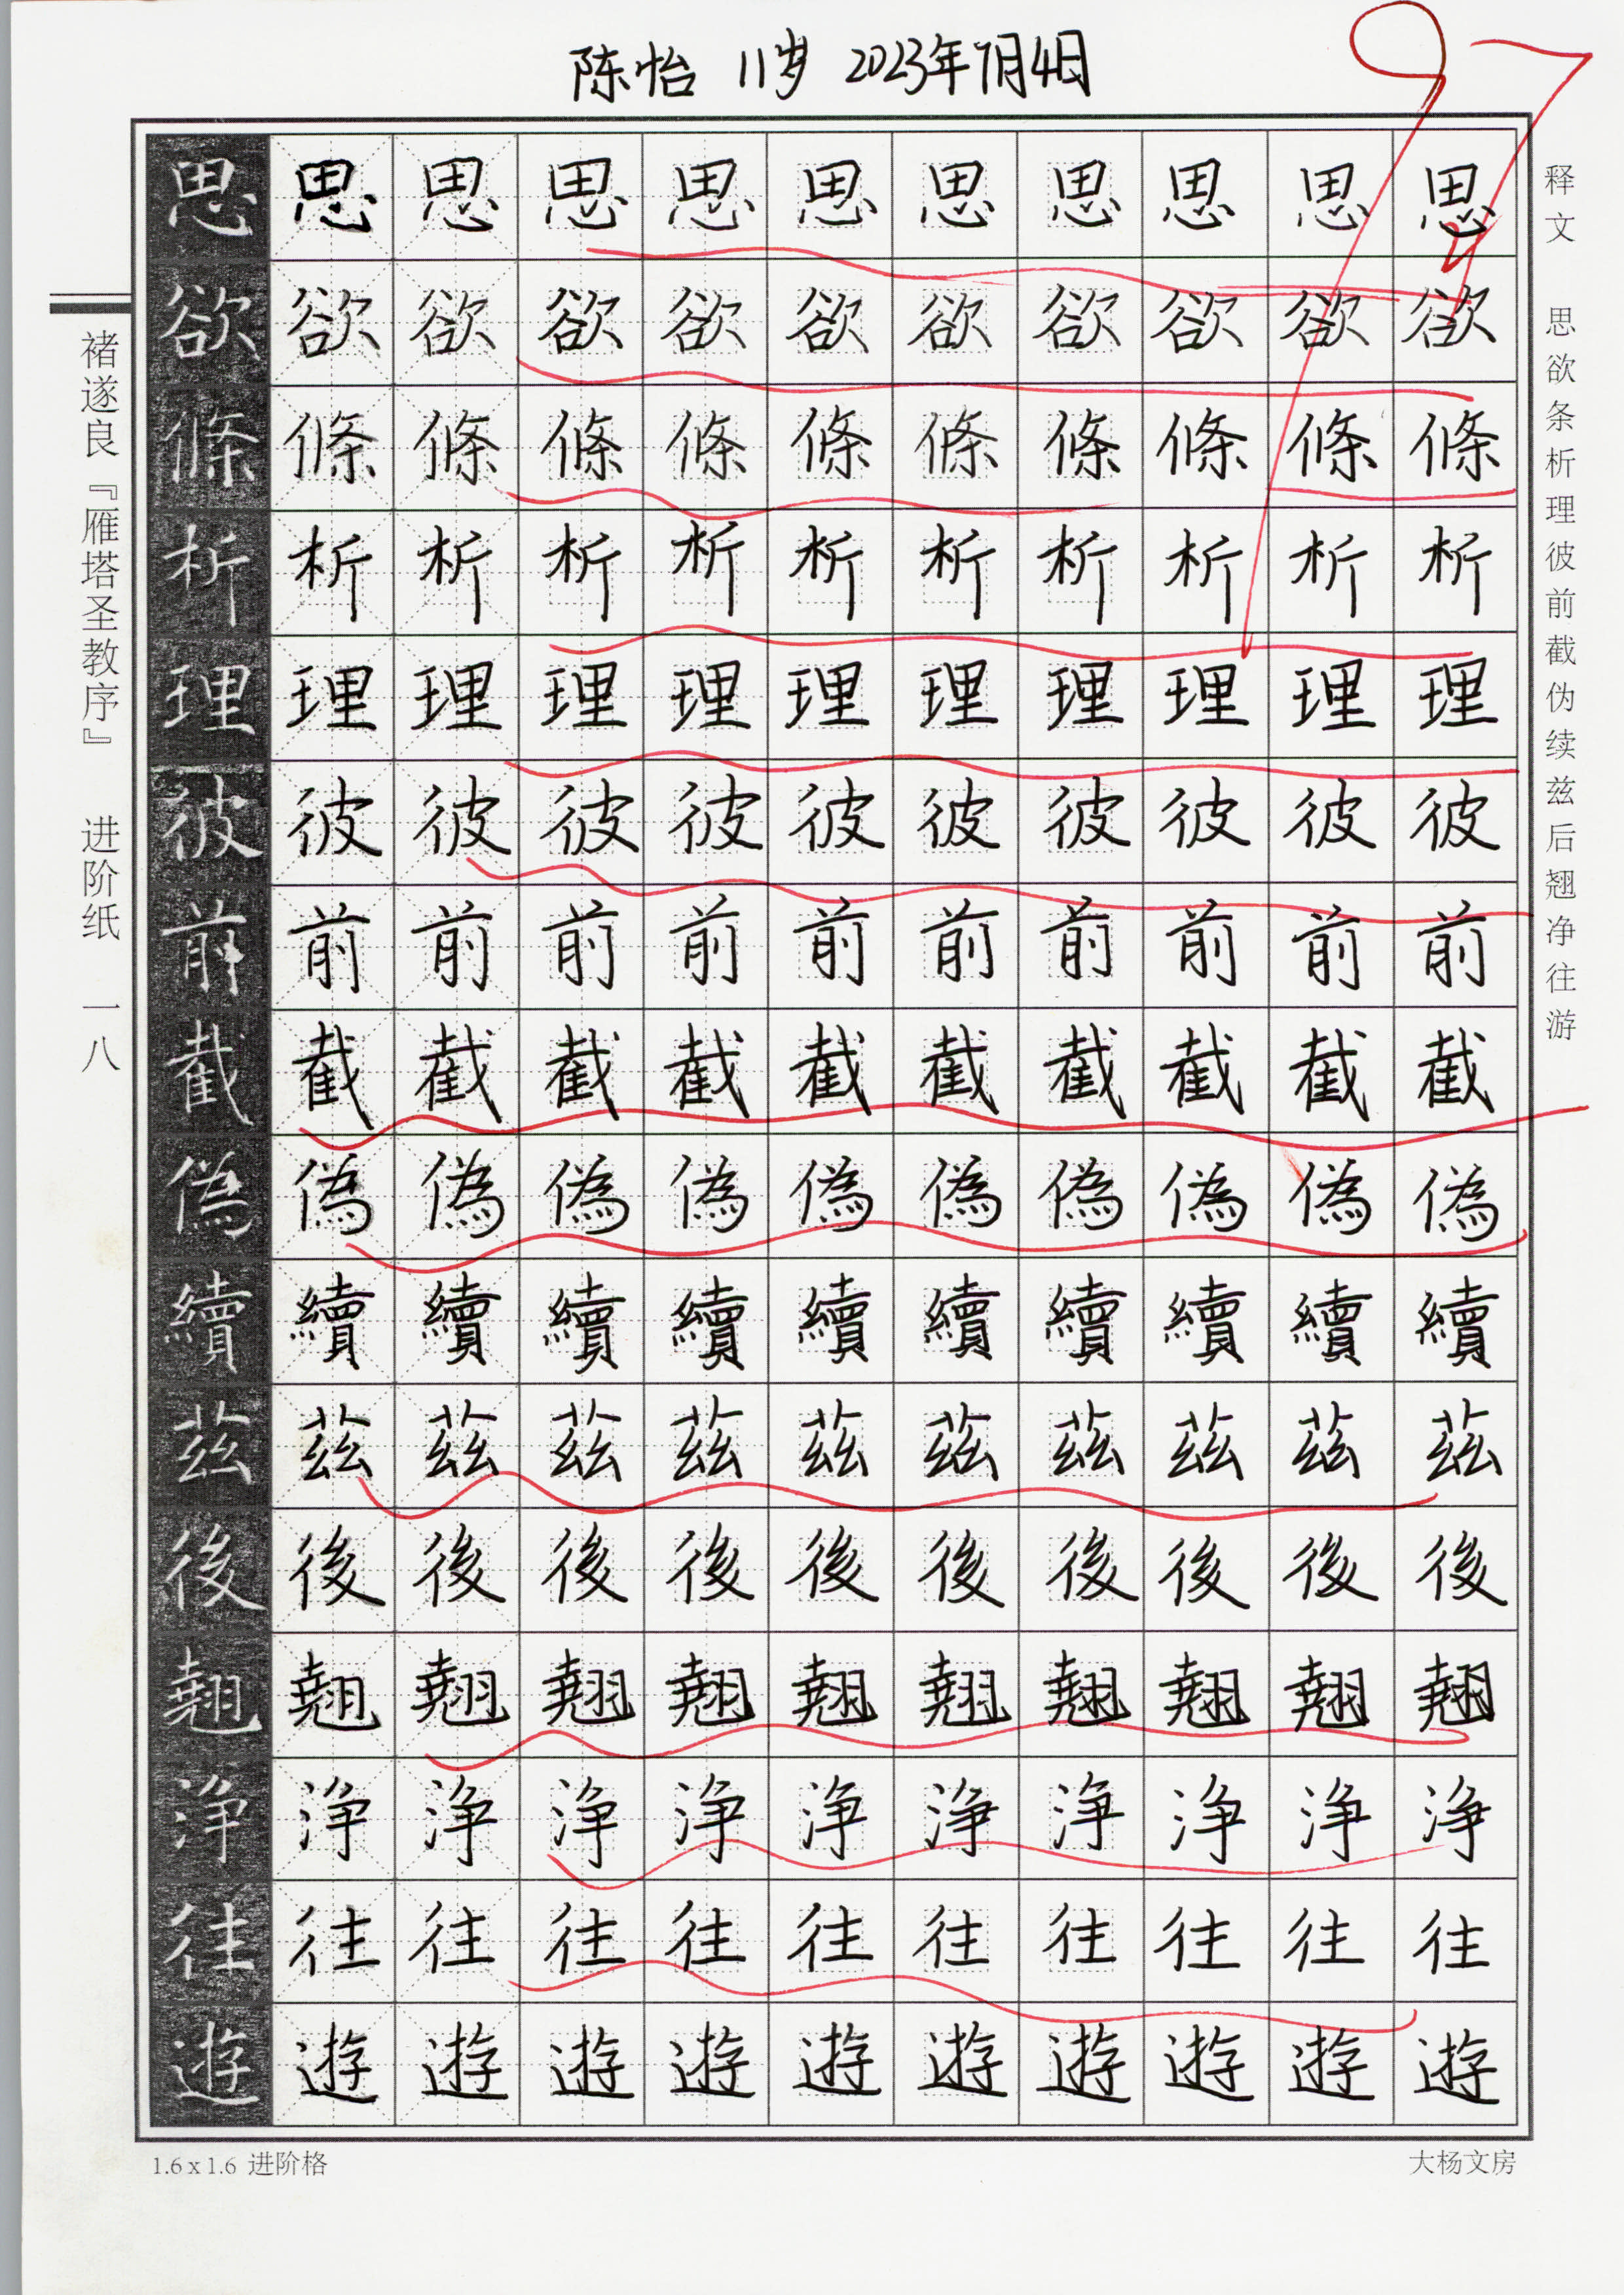 陈怡 11岁 2023年7月4日
97
思思思思思思思思思思思
欲欲欲欲欲欲欲欲欲欲欲
條條條條條條條條條條條
析析析析析析析析析析析
理理理理理理理理理理理
彼彼彼彼彼彼彼彼彼彼彼
前前前前前前前前前前前
截截截截截截截截截截截
偽偽偽偽偽偽偽偽偽偽偽
續續續續續續續續續續續
茲茲茲茲茲茲茲茲茲茲茲
後後後後後後後後後後後
翹翹翹翹翹翹翹翹翹翹翹
淨淨淨淨淨淨淨淨淨淨淨
往往往往往往往往往往往
遊遊遊遊遊遊遊遊遊遊遊
释文 思欲条析理彼前截伪续兹后翘净往游
褚遂良『雁塔圣教序』 进阶纸 一八
1.6 x 1.6 进阶格
大杨文房